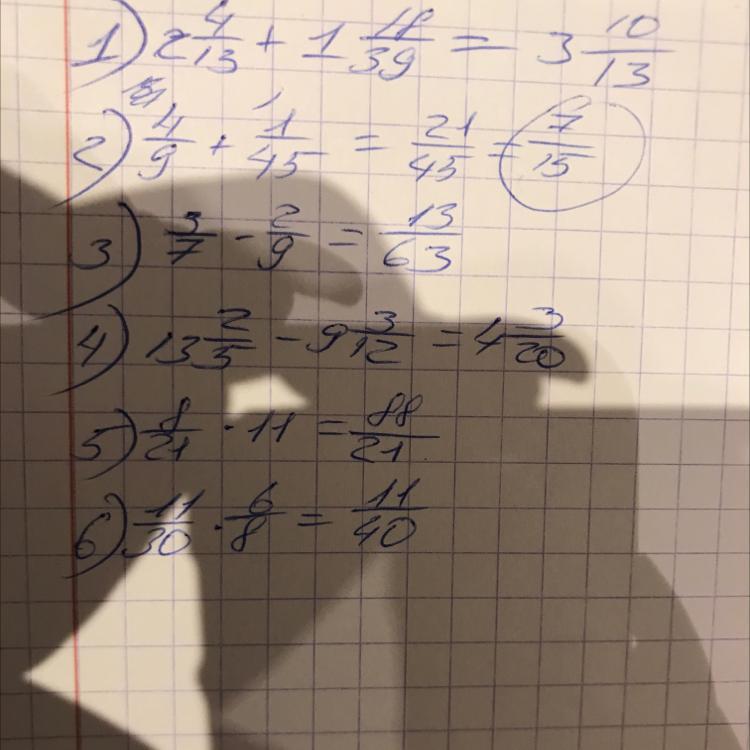 1) 2 4/13 + 1 18/39 = 3 10/13
2) 4/9 + 1/45 = 21/45 = 7/15
3) 3/7 - 2/9 = 13/63
4) 13 2/5 - 9 3/12 = 4 3/20
5) 8/21 · 11 = 88/21
6) 11/30 · 6/8 = 11/40